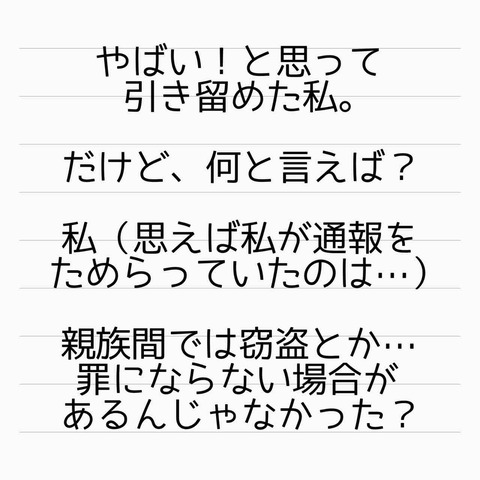 やばい！と思って
引き留めた私。
だけど、何と言えば？
私（思えば私が通報を
ためらっていたのは…）
親族間では窃盗とか…
罪にならない場合が
あるんじゃなかった？